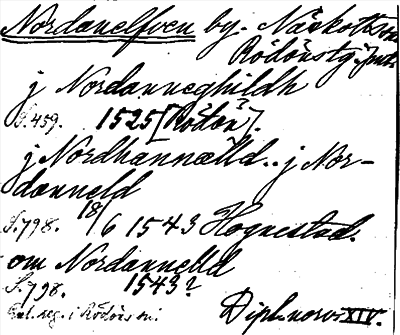 Nordanelfven by. Näskotts sn
Rödöns tg. Jmtl.
j Nordanneghildh
S. 459. 1525 [Rödön].
j Nordhannælld.. j Nor-
danneld
S. 798. 18/6 1543 Hognestad.
om Nordannelld
S. 798. 1543?
i Rödöns sn.
Dipl. norv. XIV.